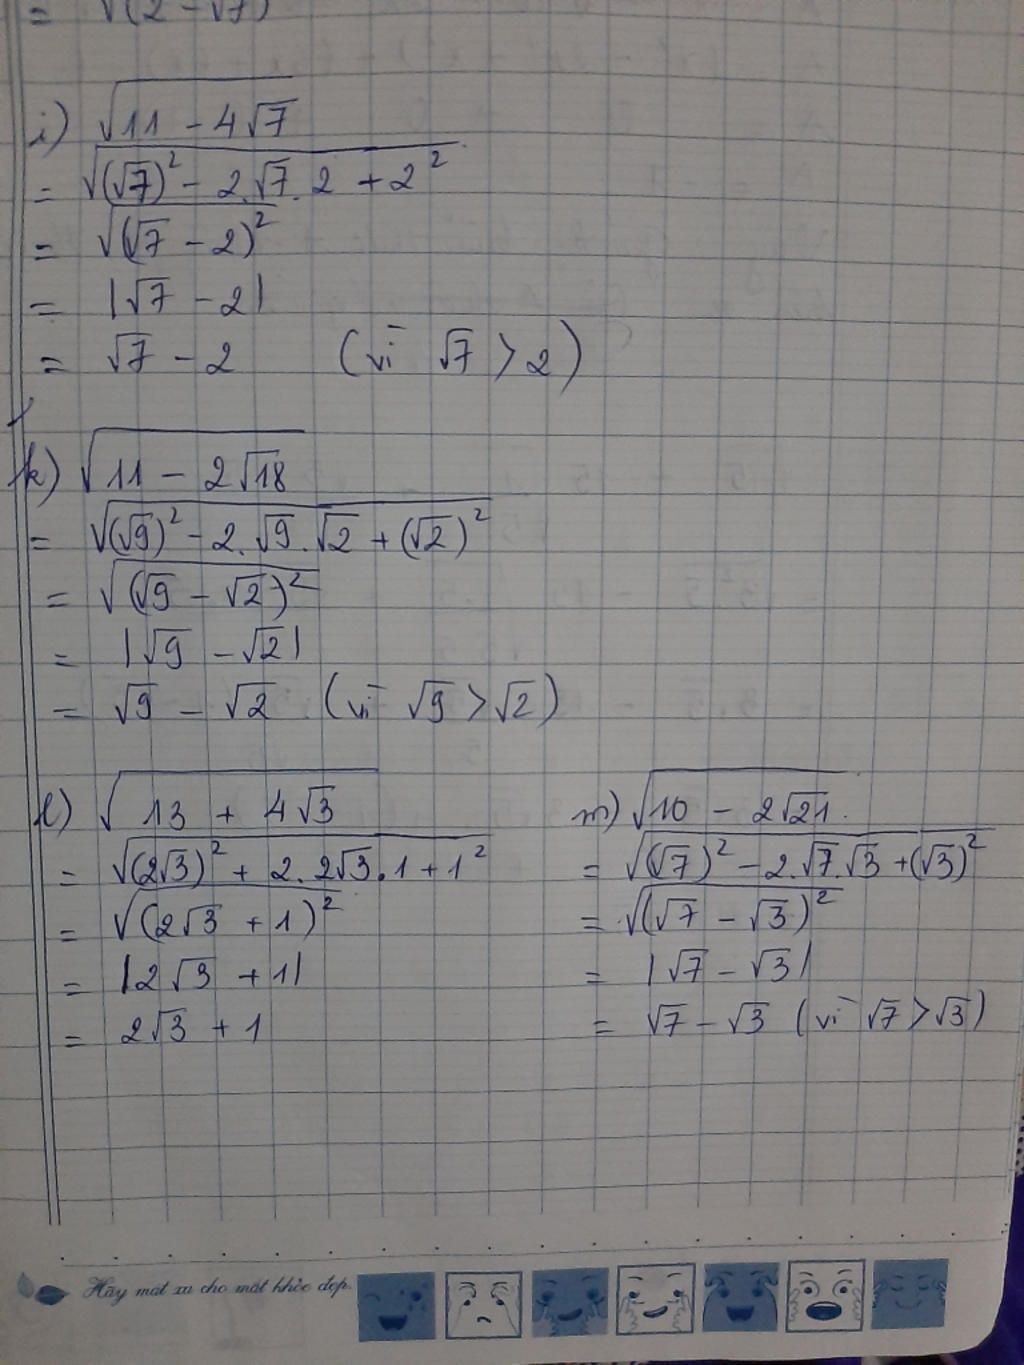 = √(2 - √7)
i) √(11 - 4√7)
= √((√7)² - 2.√7.2 + 2²)
= √((√7 - 2)²)
= |√7 - 2|
= √7 - 2 (vì √7 > 2)
k) √(11 - 2√18)
= √((√9)² - 2.√9.√2 + (√2)²)
= √((√9 - √2)²)
= |√9 - √2|
= √9 - √2 (vì √9 > √2)
l) √(13 + 4√3)
= √((2√3)² + 2.2√3.1 + 1²)
= √((2√3 + 1)²)
= |2√3 + 1|
= 2√3 + 1
m) √(10 - 2√21)
= √((√7)² - 2.√7.√3 + (√3)²)
= √((√7 - √3)²)
= |√7 - √3|
= √7 - √3 (vì √7 > √3)
Hãy mát xa cho mắt khỏe đẹp.